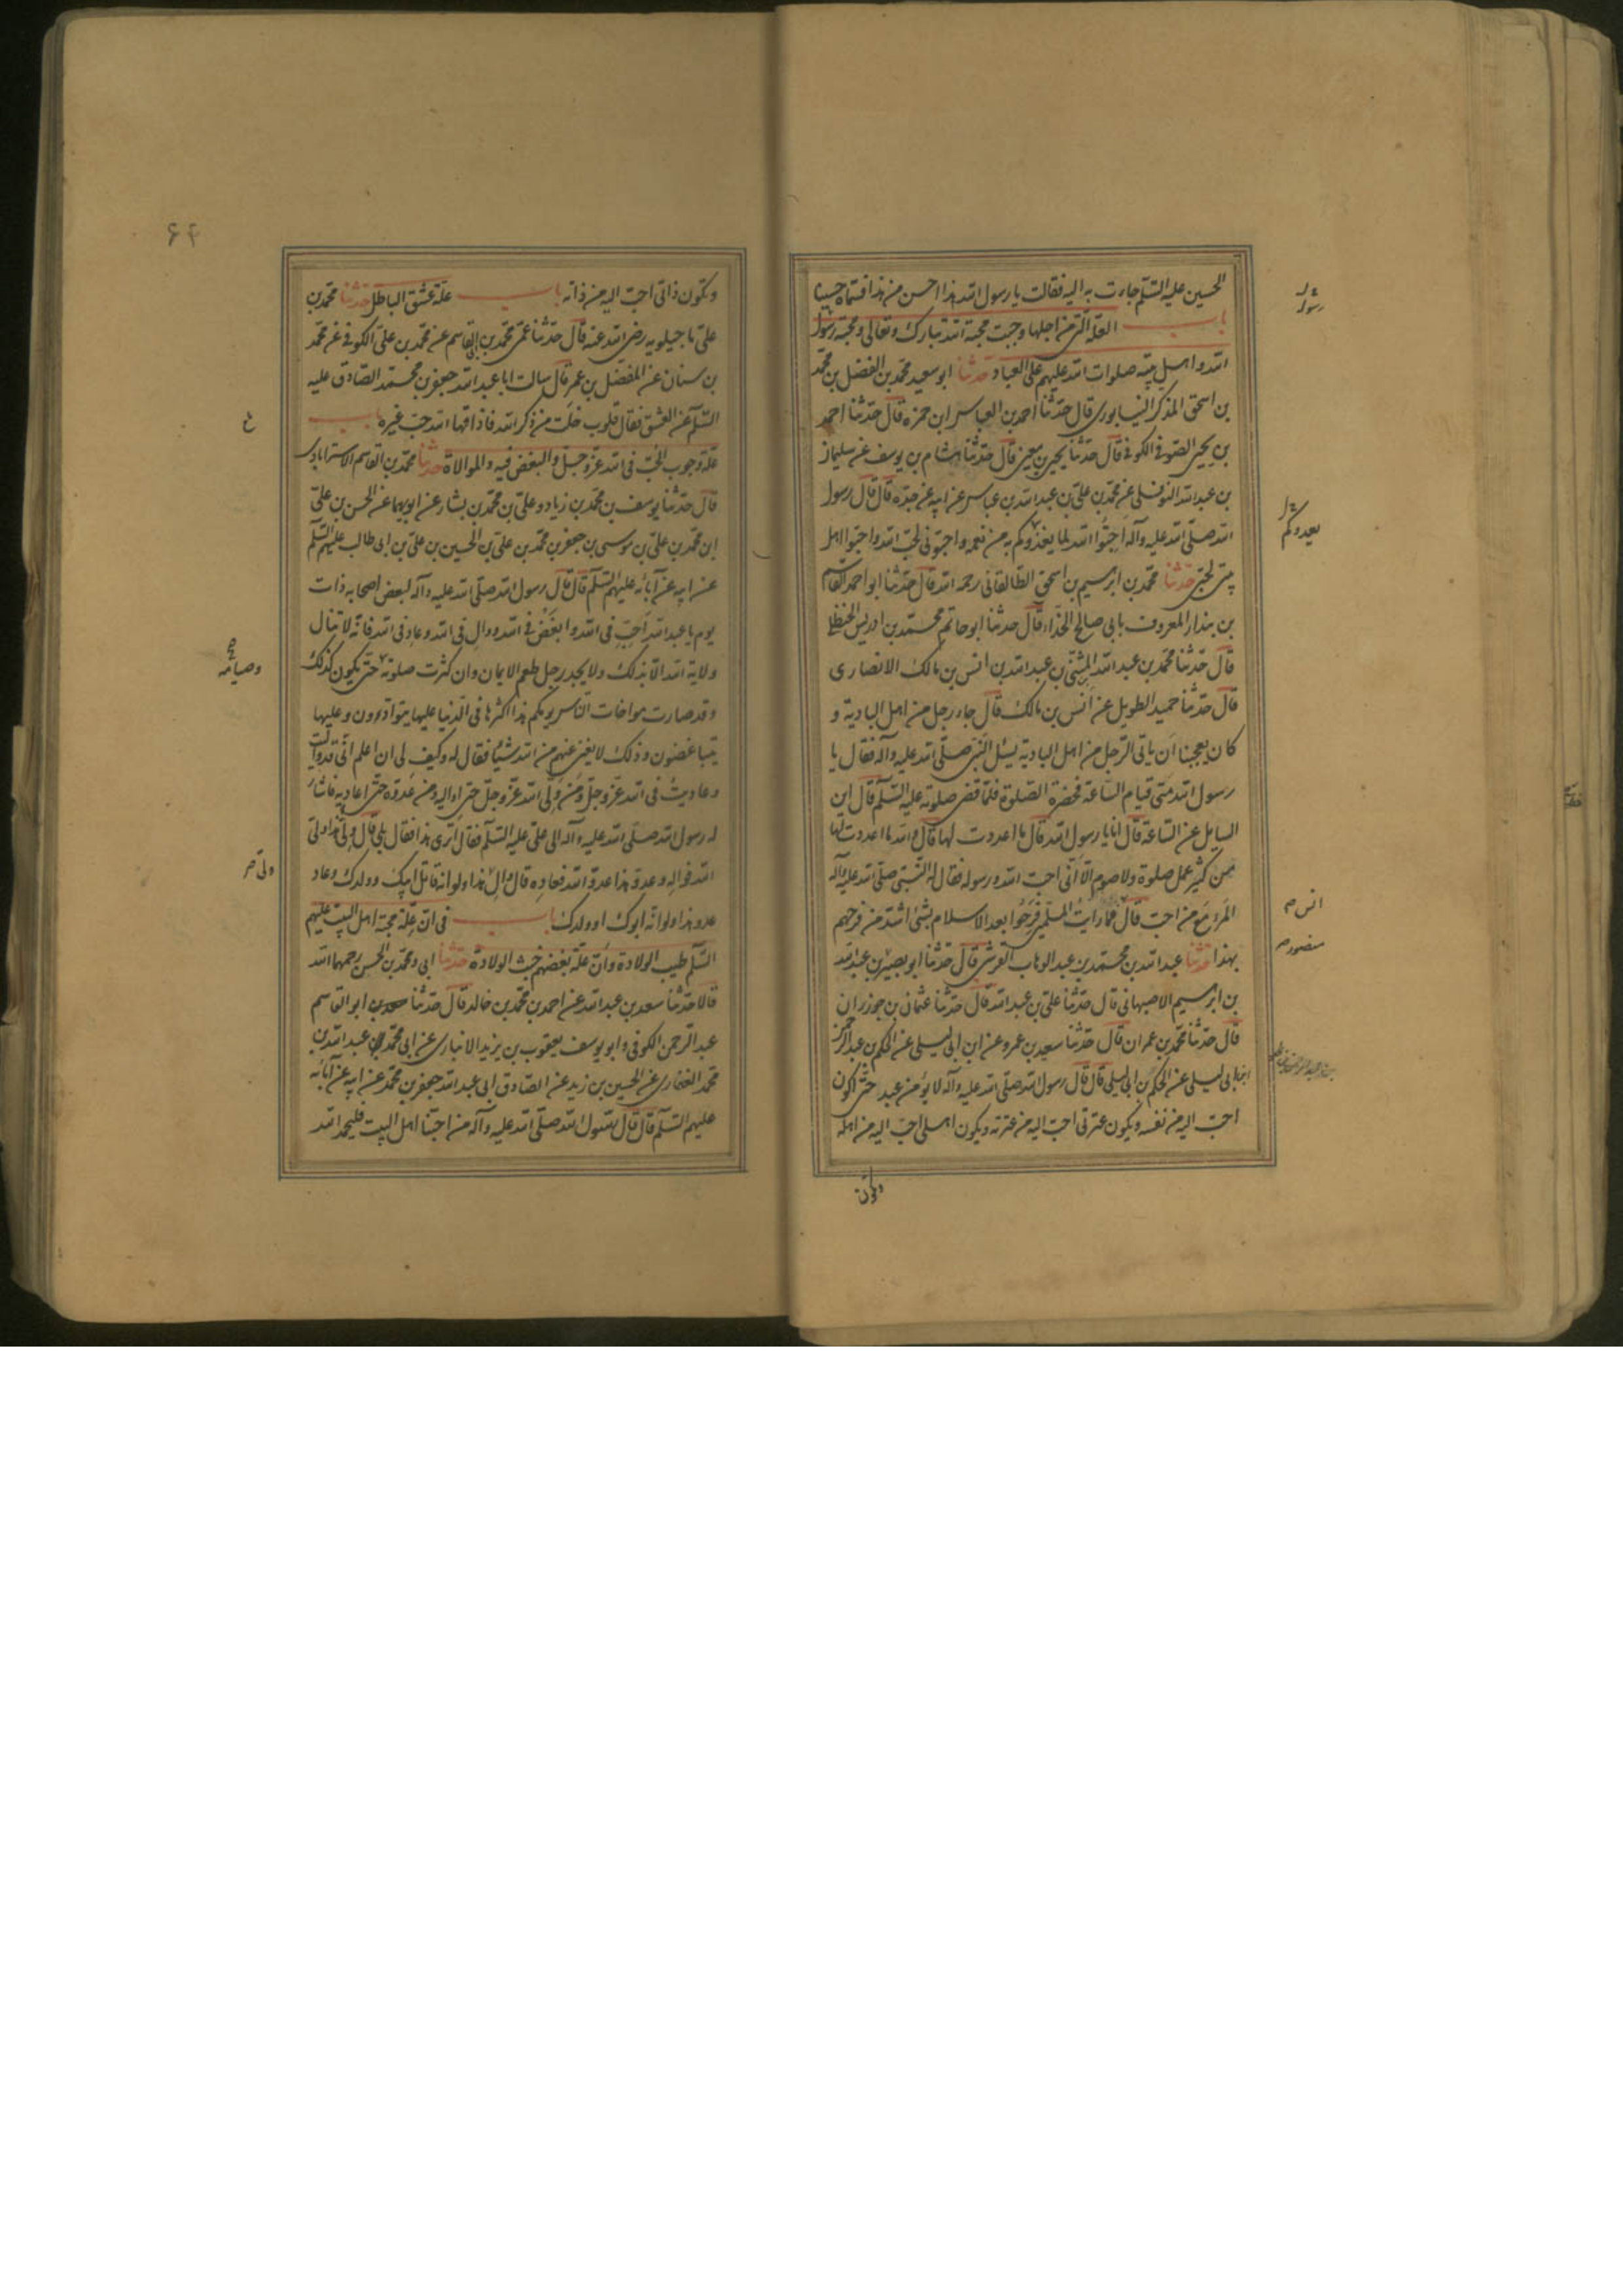 الحسين عليه السّلم جاءت به اليه فقالت يا رسول الله هذا احسن من هذا فسمّاه حسينا
باب العلّة الّتى من اجلها وجبت محبة الله تبارك وتعالى ومحبة رسول
الله واهل بيته صلوات الله عليهم على العباد حدّثنا ابو سعيد محمّد بن الفضل بن محمّد
بن اسحق المذكر النيسابورى قال حدّثنا احمد بن العباس ابن حمزه قال حدّثنا احمد
بن يحيى الصّوفى الكوفى قال حدّثنا يحيى بن معين قال حدّثنا هشام بن يوسف عن سليمان
بن عبدالله النوفلى عن محمّد بن علىّ بن عبدالله بن عباس عن ابيه عن جدّه قال قال رسول
الله صلّى الله عليه وآله اَحِبُّوا الله لما يغذُوكم به من نعمه واحبّونى لحبّ الله واحبّوا اهل
بيتى لحبّى حدّثنا محمّد بن ابرهيم بن اسحق الطّالقانى رحمه الله قال حدّثنا ابو احمد القاسم
بن بندار المعروف بابى صالح الحذّاء قال حدثنا ابوحاتم محمّد بن ادريس الحنظلى
قال حدّثنا محمّد بن عبد الله المثنّى بن عبد الله بن انس بن مالك الانصارى
قال حدّثنا حميد الطويل عن اَنس بن مالك قال جاء رجل من اهل البادية و
كان يعجبنا اَن ياتى الرّجل من اهل البادية يسئل النّبى صلّى الله عليه وآله فقال يا
رسول الله متى قيام السّاعة فحضرة الصّلوة فلمّا قضى صلوته عليه السّلم قال اين
السايل عن السّاعة قال انا يا رسول الله قال ما اعددت لها قال والله ما اعددت لها
من كثير عمل صلوة ولا صوم الّا اَنّى احبّ الله ورسوله فقال له النّبى صلّى الله عليه وآله
المَرءُ مَع من احبّ قال فما رايتُ المسلمين فَرِحُوا بعد الاسلام بشئ اشدّ من فرحهم
بهذا حدّثنا عبد الله بن محمّد بن عبد الوهاب القرشى قال حدّثنا ابو بصير بن عبد الله
بن ابرهيم الاصبهانى قال حدّثنا علىّ بن عبد الله قال حدّثنا عثمان بن جوزران
قال حدّثنا محمّد بن عمران قال حدّثنا سعيد بن عمرو عن ابن ابى ليلى عن الحكم بن عبد الرحمن
ابن ابى ليلى عن الحكم بن ابى ليلى قال قال رسول الله صلّى الله عليه وآله لا يؤمن عبد حتّى اكون
احبّ اليه من نفسه ويكون عترتى احبّ اليه من عترته ويكون اهلى احبّ اليه من اهله
رسول
يعدوكم
انس م
منصور م
ويكون
۶۴
ويكون ذاتى احبّ اليه من ذاته باب علّة عشق الباطل حدّثنا محمّد بن
علىّ ماجيلويه رضى الله عنه قال حدّثنا عمّى محمّد بن ابى القاسم عن محمّد بن علىّ الكوفى عن محمّد
بن سنان عن المفضّل بن عمر قال سالت ابا عبد الله جعفر بن محمّد الصّادق عليه
السّلم عن العشق فقال قلوب خلت من ذكر الله فاذاقها الله حبّ غيره باب
علّة وجوب الحبّ فى الله عزّ وجلّ والبغض فيه والموالاة حدّثنا محمّد بن القاسم الاسترابادى
قال حدّثنا يوسف بن محمّد بن زياد وعلىّ بن محمّد بن بشار عن ابويهما عن الحسن بن علىّ
ابن محمّد بن علىّ بن موسى بن جعفر بن محمّد بن علىّ بن الحسين بن علىّ بن ابى طالب عليهم السّلم
عن ابيه عن آبائه عليهم السّلم قال قال رسول الله صلّى الله عليه وآله لبعض اصحابه ذات
يوم يا عبد الله اَحِبِّ فى الله وابغض فى الله ووالِ فى الله وعادِ فى الله فانّه لا تنال
ولاية الله الّا بذلك ولا يجد رجل طعم الايمان وان كثرت صلوته حتّى يكون كذلك
وقد صارت مواخات النّاس يومكم هذا اكثرها فى الدّنيا عليها يتوادّون وعليها
يتباغضون وذلك لا يغنى عنهم من الله شيئا فقال له وكيف لى ان اعلم انّى قد واليت
وعاديتُ فى الله عزّ وجلّ ومن ولىّ الله عزّ وجلّ حتى اواليه ومن عدوّه حتّى اعاديه فاشار
له رسول الله صلّى الله عليه وآله الى علىّ عليه السّلم فقال اَترى هذا فقال بلى قال ولىّ هذا ولىّ
الله فوالِه وعدوّ هذا عدوّ الله فعادِه قال والِ هذا ولو انّه قاتل ابيك وولدك وعاد
عدو هذا ولو انّه ابوك او ولدك باب فى انّ علّة محبّة اهل البيت عليهم
السّلم طيب الولادة واَنّ علّة بغضهم خبث الولادة حدّثنا ابى ومحمّد بن الحسن رحمهما الله
قالا حدّثنا سعد بن عبد الله عن احمد بن محمّد بن خالد قال حدّثنا ابو القاسم
عبد الرّحمن الكوفى وابو يوسف يعقوب بن يزيد الانبارى عن ابى محمّد عبد الله بن
محمّد الغفارى عن الحسين بن زيد عن الصّادق ابى عبد الله جعفر بن محمّد عن ابيه عن آبائه
عليهم السّلم قال قال رسول الله صلّى الله عليه وآله من احبّنا اهل البيت فليحمد الله
وصيامه
ولىّ